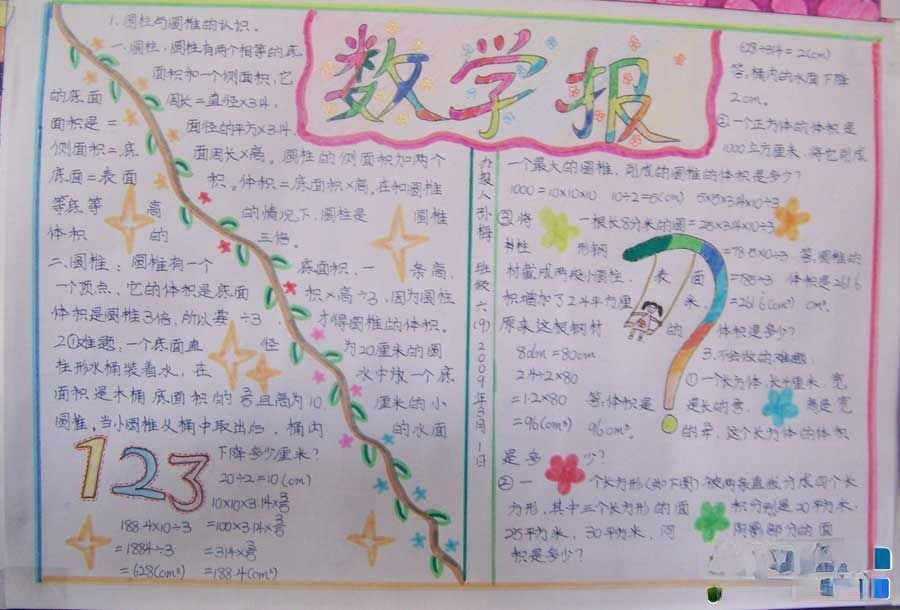 数学报
1.圆柱与圆椎的认识。
一.圆柱:圆柱有两个相等的底
面积和一个侧面积,它
的底面 周长=直径×3.14,
面积是= 面径的平方×3.14,
侧面积=底 面周长×高。圆柱的侧面积加两个
底面=表面 积。体积=底面积×高。在和圆椎
等底等 高 的情况下,圆柱是 圆椎
体积 的 三倍。
二.圆椎:圆椎有一个 底面积,一 条高,
一个顶点,它的体积是底面 积×高÷3,因为圆柱
体积是圆椎3倍,所以要÷3, 才得圆椎的体积。
2①难题:一个底面直 径 为20厘米的圆
柱形水桶装着水,在 水中放一个底
面积是木桶底面积的3/5且高为10 厘米的小
圆椎,当小圆椎从桶中取出后,桶内 的水面
下降多少厘米?
123
20÷2=10(cm)
10×10×3.14×3/5
188.4×10÷3 =100×3.14×3/5
=1884÷3 =314×3/5
=628(cm³) =188.4(cm²)
办报人 孙梅 班级 六(9) 2009年3月1日
628÷314=2(cm)
答:桶内的水面下降
2cm。
②一个正方体的体积是
1000立方厘米,将它削成
一个最大的圆椎,削成的圆椎的体积是多少?
1000=10×10×10 10÷2=5(cm) 5×5×3.14×10÷3
③将 一根长8分米的圆 =25×3.14×10÷3
柱 形钢 =78.5×10÷3 答:圆椎的
材截成两段小圆柱, 表 面 =785÷3 体积是261.6
积增加了2.4平方厘 米 =261.6(cm³) cm³
原来这根钢材 的 体积是多少?
8dm=80cm
2.4÷2×80
=1.2×80 答:体积是
=96(cm³) 96cm³。
3.不会做的难题:
①一个长方体,长4厘米,宽
是长的 高是宽
的 这个长方体的体积
是多 少?
②一 个长方形(如下图)被两条直线分成四个长
方形,其中三个长方形的面 积分别是20平方米,
25平方米,30平方米,问 阴影部分的面
积是多少?